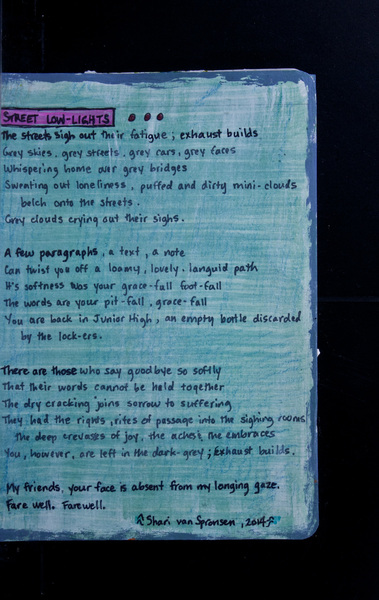 STREET LOW-LIGHTS
The streets sigh out their fatigue; exhaust builds
Grey skies, grey streets, grey cars, grey faces
Whispering home over grey bridges
Sweating out loneliness, puffed and dirty mini-clouds
belch onto the streets.
Grey clouds crying out their sighs.
A few paragraphs, a text, a note
Can twist you off a loamy, lovely, languid path
It's softness was your grace-full foot-fall
The words are your pit-fall, grace-fall
You are back in Junior High, an empty bottle discarded
by the lock-ers.
There are those who say goodbye so softly
That their words cannot be held together
The dry cracking joins sorrow to suffering
They had the rights, rites of passage into the sighing rooms,
The deep crevasses of joy, the aches, the embraces
You, however, are left in the dark-grey; exhaust builds.
My friends, your face is absent from my longing gaze.
Fare well. Farewell.
Shari van Spronsen, 2014